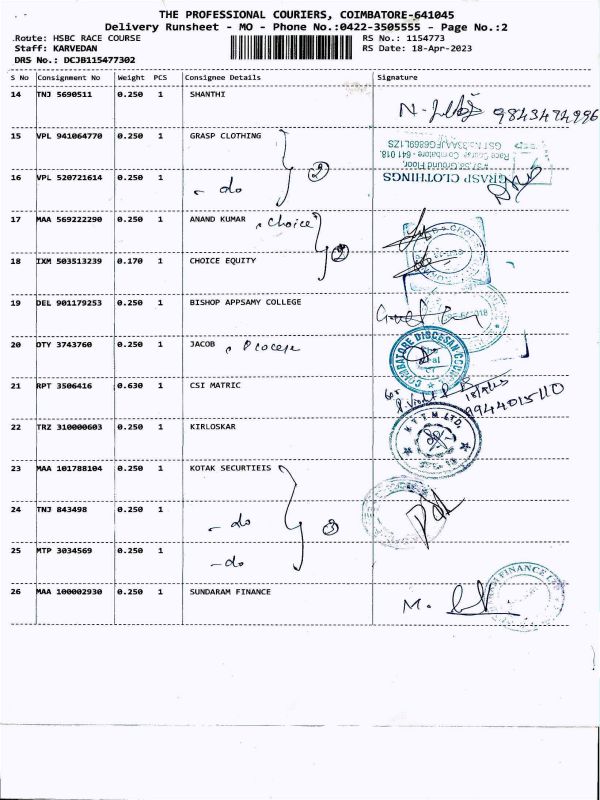 THE PROFESSIONAL COURIERS, COIMBATORE-641045
Delivery Runsheet - MO - Phone No.:0422-3505555 - Page No.:2
Route: HSBC RACE COURSE RS No.: 1154773
Staff: KARVEDAN RS Date: 18-Apr-2023
DRS No.: DCJB115477302
S No Consignment No Weight PCS Consignee Details Signature
14 TNJ 5690511 0.250 1 SHANTHI
9843474996
15 VPL 941064770 0.250 1 GRASP CLOTHING
GRASP CLOTHINGS
#37,S9,Ground Floor,
Race Course, Coimbatore - 641 018.
16 VPL 520721614 0.250 1
- do 2
17 MAA 569222290 0.250 1 ANAND KUMAR , choice
18 IXM 503513239 0.170 1 CHOICE EQUITY 2
19 DEL 901179253 0.250 1 BISHOP APPSAMY COLLEGE
20 OTY 3743760 0.250 1 JACOB
COIMBATORE DIOCESAN
21 RPT 3506416 0.630 1 CSI MATRIC
9944015110
22 TRZ 310000603 0.250 1 KIRLOSKAR
23 MAA 101788104 0.250 1 KOTAK SECURTIEIS
24 TNJ 843498 0.250 1
- do 3
25 MTP 3034569 0.250 1
- do
26 MAA 100002930 0.250 1 SUNDARAM FINANCE
M.